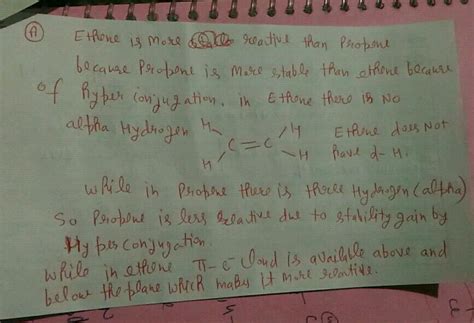 A Ethene is more reactive than Propene
because Propene is more stable than ethene because
of hyper conjugation, in Ethene there is No
alpha Hydrogen H H Ethene does Not
C=C
H H have α-H.
while in Propene there is three Hydrogen (alpha)
So Propene is less reactive due to stability gain by
Hyper conjugation.
while in ethene π-e⁻ cloud is available above and
below the plane which makes it more reactive.